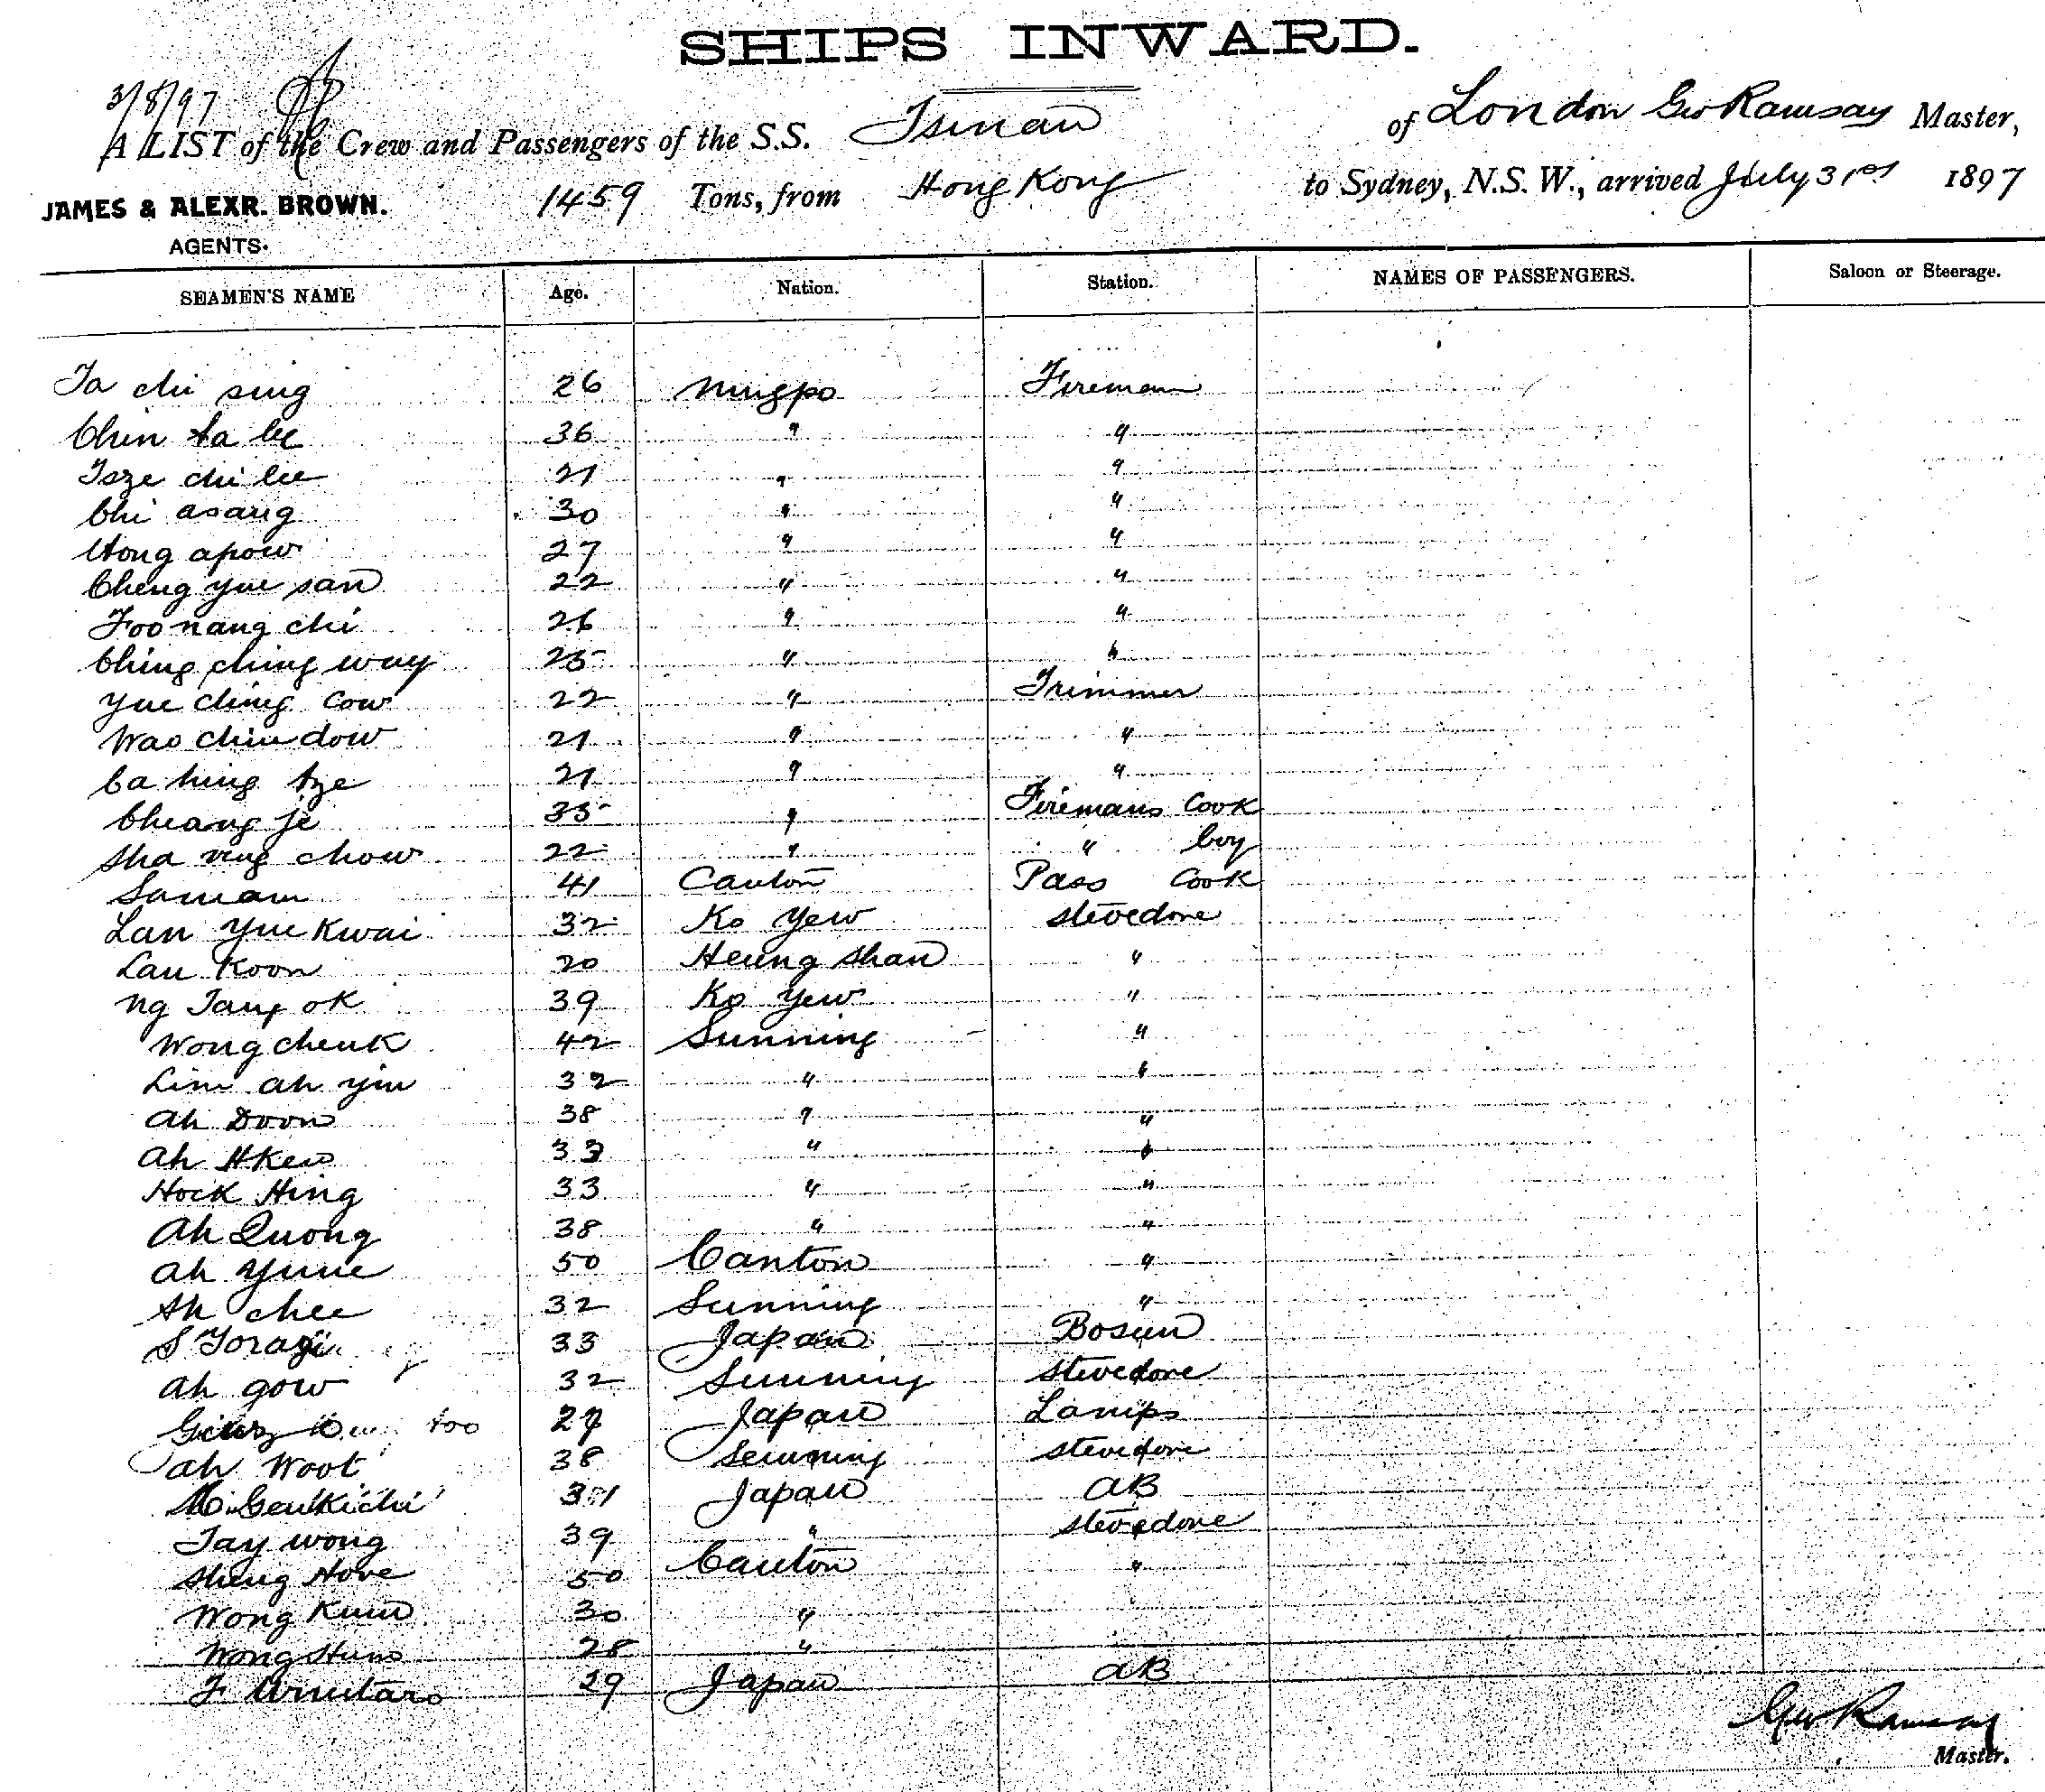 SHIPS INWARD.
3/8/97
A LIST of the Crew and Passengers of the S.S. Tsinan of London Geo Ramsay Master,
JAMES & ALEXR. BROWN. 1459 Tons, from Hong Kong to Sydney, N.S.W., arrived July 31st 1897
AGENTS.
SEAMEN'S NAME Age. Nation. Station. NAMES OF PASSENGERS. Saloon or Steerage.
Ta chi sing 26 Ningpo Fireman
Chin ta 36 " "
Tsze chi lee 21 " "
Chi asang 30 " "
Hong apow 27 " "
Cheng yue san 22 " "
Foo nang chi 26 " "
Ching ching way 25 " "
Yue ching cow 22 " Trimmer
Wao chin dow 21 " "
Ca hing tze 21 " "
Cheang je 35 " Firemans Cook
Sha chow 22 " " boy
Samam 41 Canton Pass Cook
Lan Yue Kwai 32 Ko Yew stevedore
Lau Koon 20 Heung shan "
Ng Tang ok 39 Ko Yew "
Wong cheuk 42 Sunning "
Lim ah yin 32 " "
Ah Doon 38 " "
Ah 33 " "
Hock Hing 33 " "
Ah Quong 38 " "
Ah Yune 50 Canton "
Ah chee 32 Sunning "
S Toragi 33 Japan Bosun
Ah gow 32 Sunning stevedore
too 27 Japan Lamps
Ah Woot 38 Sunning stevedore
M. Genkichi 31 Japan AB
Tay wong 39 " stevedore
Sheng Hove 50 Canton "
Wong Kum 30 "
Wong 28 "
F 29 Japan AB
Geo Ramsay
Master.